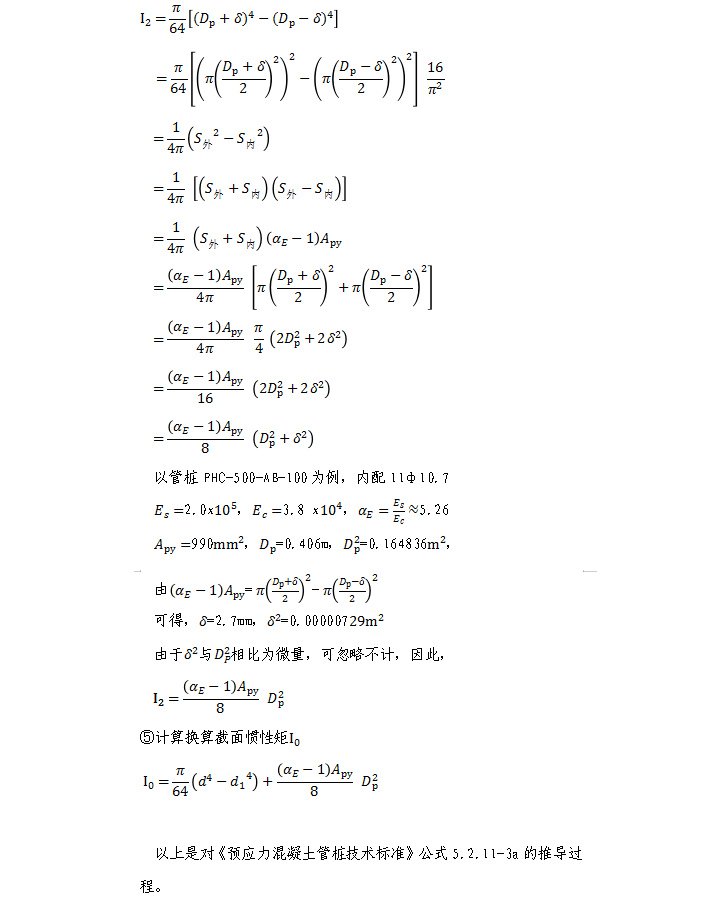 I₂ = π/64 [(Dₚ + δ)⁴ − (Dₚ − δ)⁴]
= π/64 [(π((Dₚ + δ)/2)²)² − (π((Dₚ − δ)/2)²)²] 16/π²
= 1/4π (S外² − S内²)
= 1/4π [(S外 + S内)(S外 − S内)]
= 1/4π (S外 + S内)(α_E − 1)A_py
= (α_E − 1)A_py/4π [π((Dₚ + δ)/2)² + π((Dₚ − δ)/2)²]
= (α_E − 1)A_py/4π π/4 (2Dₚ² + 2δ²)
= (α_E − 1)A_py/16 (2Dₚ² + 2δ²)
= (α_E − 1)A_py/8 (Dₚ² + δ²)
以管桩 PHC-500-AB-100 为例，内配 11ф10.7
E_s =2.0x10⁵，E_c =3.8 x10⁴，α_E = E_s/E_c ≈5.26
A_py =990mm²，Dₚ=0.406m，Dₚ²=0.164836m²，
由(α_E − 1)A_py= π((Dₚ+δ)/2)² - π((Dₚ−δ)/2)²
可得，δ=2.7mm，δ²=0.00000729m²
由于δ²与D_P²相比为微量，可忽略不计，因此，
I₂ = (α_E − 1)A_py/8 Dₚ²
⑤计算换算截面惯性矩I₀
I₀ = π/64 (d⁴ − d₁⁴) + (α_E − 1)A_py/8 Dₚ²
以上是对《预应力混凝土管桩技术标准》公式 5.2.11-3a 的推导过
程。